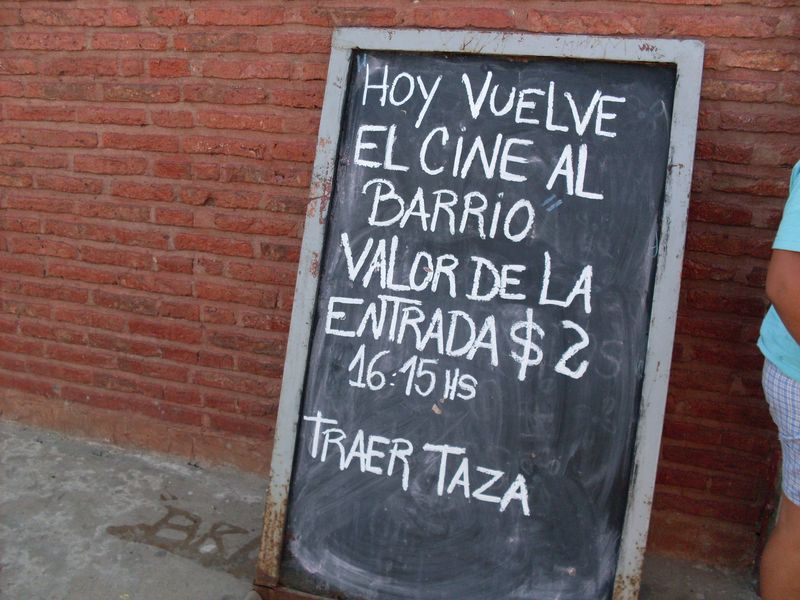 HOY VUELVE
EL CINE AL
BARRIO
VALOR DE LA
ENTRADA $2
16:15 HS
TRAER TAZA